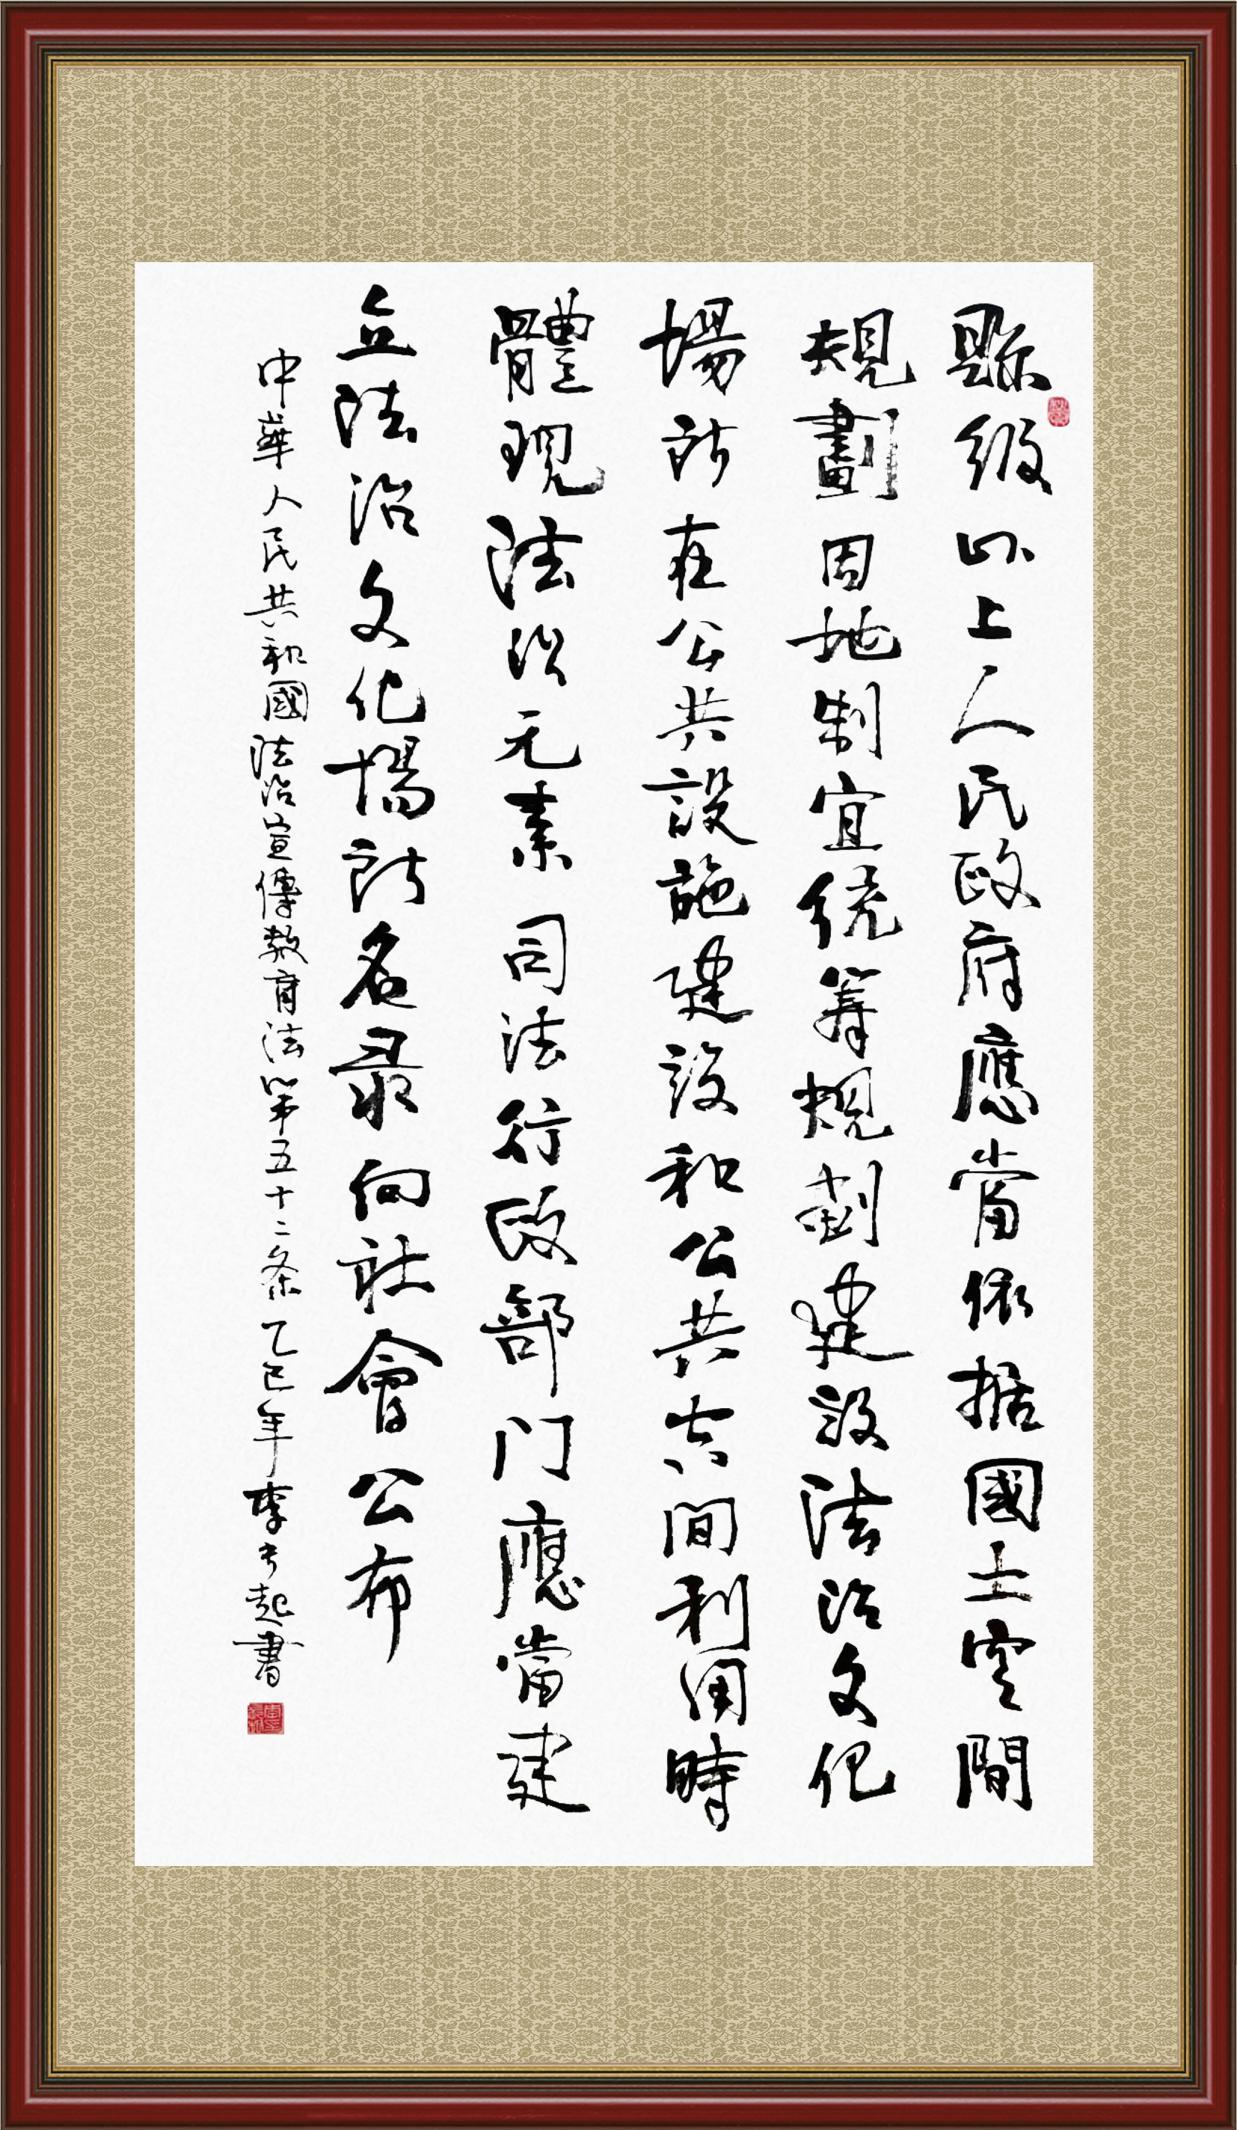 縣級以上人民政府應當依据國土空間
規劃因地制宜統筹規劃建設法治文化
場所在公共設施建設和公共空間利用時
體現法治元素司法行政部门應當建
立法治文化場所名录向社會公布
中華人民共和國法治宣傳教育法第五十二条乙巳年李起書